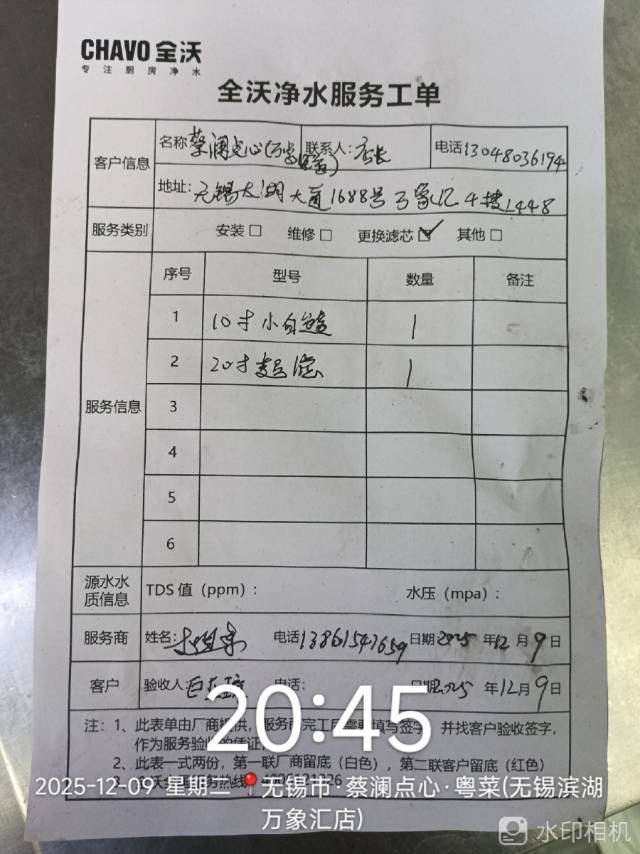 CHAVO 全沃
专注厨房净水
全沃净水服务工单
客户信息 名称 蔡澜点心(万象 联系人: 店长 电话 13048036194
地址: 无锡太湖大道1688号万象汇4楼L448
服务类别 安装□ 维修□ 更换滤芯☑ 其他□
服务信息 序号 型号 数量 备注
1 10寸小 1
2 20寸 1
3
4
5
6
源水水质信息 TDS 值(ppm): 水压(mpa):
服务商 姓名: 电话 13861541659 日期 2025 年 12 月 9 日
客户 验收人: 电话: 日期 2025 年 12 月 9 日
注: 1、此表单由厂商提供,服务商完工后需要填写签字,并找客户验收签字,
作为服务验收的凭证。
2、此表一式两份,第一联厂商留底(白色),第二联客户留底(红色)
20:45
2025-12-09 星期二 无锡市·蔡澜点心·粤菜(无锡滨湖
万象汇店)
水印相机